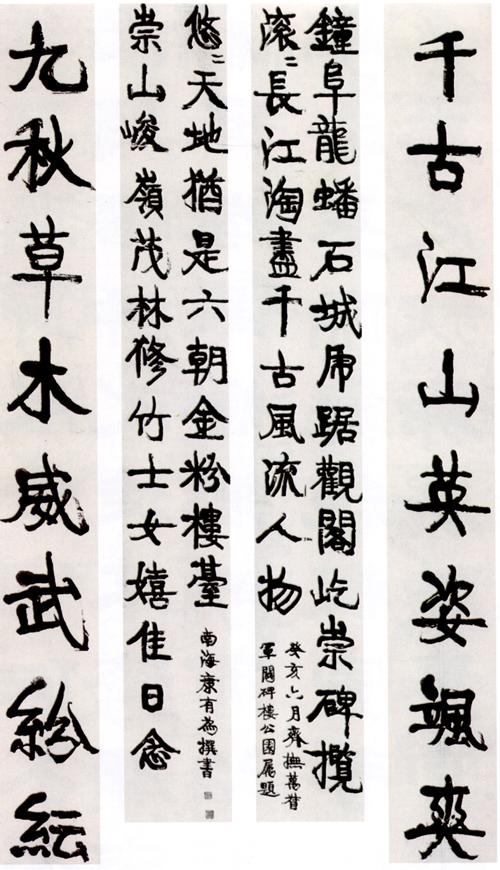 千古江山英姿颯爽
鐘阜龍蟠石城虎踞觀閣屹崇碑攬
滾〻長江淘盡千古風流人物
癸亥六月齊撫萬督
軍閱碑樓公園屬題
悠〻天地猶是六朝金粉樓臺
南海康有為撰書
崇山峻嶺茂林修竹士女嬉佳日念
九秋草木威武紛紜